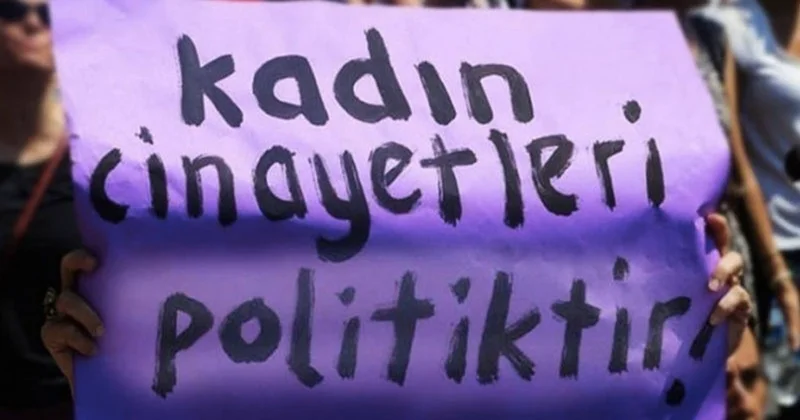 kadın
cinayetleri
politiktir!